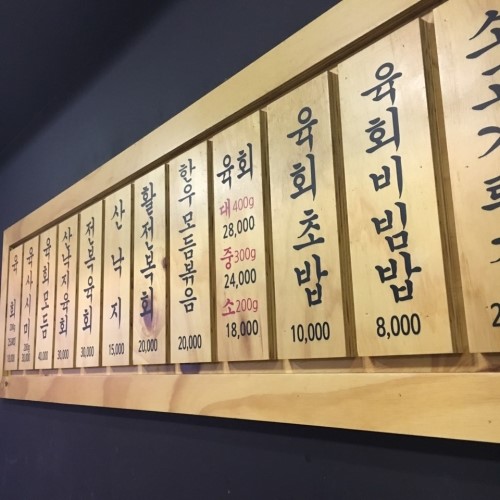 육회
육사시미
육회모듬
40,000
산낙지육회
30,000
전복육회
30,000
산낙지
15,000
활전복회
20,000
한우모듬볶음
20,000
육회
대 400g
28,000
중 300g
24,000
소 200g
18,000
육회초밥
10,000
육회비빔밥
8,000